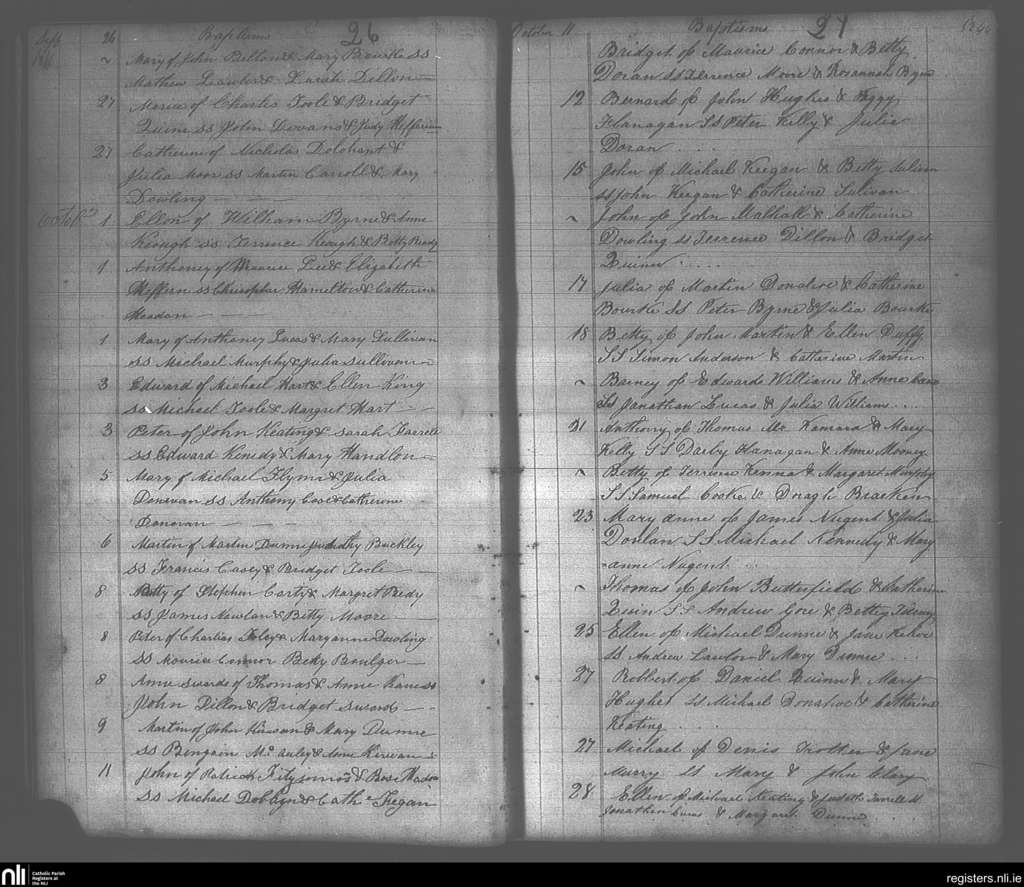 Sept 26 Baptisms 26
~ Mary of John Pelton & Mary Bourke SS
Mathew Lawler & Sarah Dillon
27 Maria of Charles Toole & Bridget
Quinn SS John Dovans & Judy Heffernan
27 Catherine of Nicholas Delahant &
Julia Moor SS Martin Carroll & Mary
Dowling
October 1 Ellen of William Byrne & Anne
Keough SS Terrence Keough & Betty Brady
1 Anthoney of Maurice Lee & Elizabeth
Heffern SS Chrisopher Hamelton & Catherine
Meadan
1 Mary of Anthoney Lucas & Mary Sullivan
SS Michael Murphy & Julia Sullivan
3 Edward of Michael Hart & Ellen King
SS Michael Toole & Margret Hart
3 Peter of John Keating & Sarah Farrell
SS Edward Kenedy & Mary Handlon
5 Mary of Michael Flynn & Julia
Donovan SS Anthony Cool & Catherine
Donovan
6 Martin of Martin Dunne Buckley
SS Francis Casey & Bridget Toole
8 Betty of Stephen Carty & Margret Reedy
SS James Nowlan & Betty Moore
8 Peter of Charles Foley & Maryanne Dowling
SS Maurice Connor Betty Boulger
8 Anne Swords of Thomas & Anne SS
John Dillon & Bridget Swords
9 Martin of John Kirwan & Mary Dunne
SS Bengain Mc auley & Anne Kirwan
11 John of Patrick Fitzsomos & Rose
SS Michael Dobbyn & Cath Fegan
October 11 Baptisms 27
Bridget of Maurice Connor & Betty
Doran SS Terrence Moore & Rosannah Byrne
12 Bernard of John Hughes & Peggy
Flanagan SS Peter Kelly & Julia
Doran
15 John of Michael Keegan & Betty
SS John Keegan & Catherine Sulivan
~ John of John Malhall & Catherine
Dowling SS Terrence Dillon & Bridget
Quinn
17 Julia of Martin Donahoe & Catherine
Bourke SS Peter Byrne & Julia Bourke
18 Betty of John Martin & Ellen Duffy
SS Simon Anderson & Catherine Martin
~ Barney of Edward Williams & Anne
SS Jonathan Lucas & Julia Williams
21 Anthony of Thomas Mc Namara & Mary
Kelly SS Darby Flanagan & Anne Mooney
~ Betty of Terrence Kenna & Margaret Murphy
SS Samuel Cooke & Bracken
23 Mary anne of James Nugent & Julia
Donlan SS Michael Kennedy & Mary
anne Nugent
~ Thomas of John Butterfield & Catherine
Quin SS Andrew Gore & Betty
25 Ellen of Michael Dunne & Jane Kehoe
SS Andrew Lawlor & Mary Dunne
27 Robbert of Daniel Quinn & Mary
Hughes SS Michael Donahoe & Catherine
Keating
27 Michael of Denis Trother & Jane
Murry SS Mary & John Clary
28 Ellen of Michael Keating & Judith Farrell SS
Jonathan Lucas & Margaret Dunne
nli Catholic Parish
Registers at
the NLI
registers.nli.ie